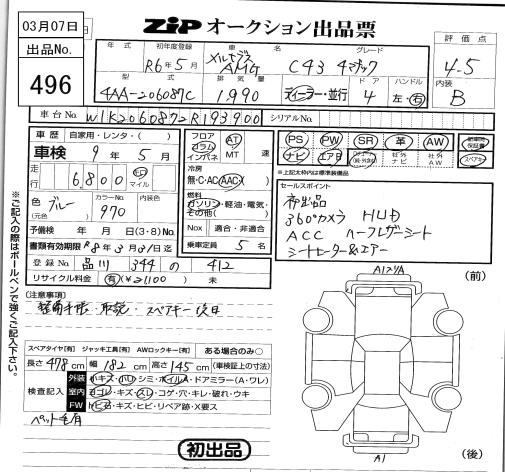 03月07日
出品No.
496
ZIP オークション出品票
年式 初年度登録 車名 グレード
R6年5月 メルセデスAMG C43 4マチック
評価点
4.5
内装
B
型式 排気量 ドア ハンドル
4AA-206087C 1,990 ディーラー・並行 4 左・右
車台No. W1K2060872R193900 シリアルNo.
車歴 自家用・レンタ・( )
車検 9年5月
走行 6,800 km マイル
色 (元色) ブルー カラーNo. 970 内装色
予備検 年 月 日(3・8)No.
書類有効期限 R8年3月31日迄
登録No. 品川 344 の 412
リサイクル料金 有(¥21100) 未
フロア コラム インパネ AT MT 速
冷房 無・C・AC・AAC
燃料 ガソリン・軽油・電気・その他( )
Nox 適合・非適合
乗車定員 5 名
PS PW SR 革 AW
ナビ エアB 社外ナビ 社外AW スペアキー
※上記太枠内は標準装備品
セールスポイント
初出品
360°カメラ HUD
ACC ハーフレザーシート
シートヒーター&エアー
(注意事項)
整備手帳・取説・スペアキー後日
スペアタイヤ[有] ジャッキ工具[有] AWロックキー[有] ある場合のみ○
長さ478cm 幅182cm 高さ145cm (車検証上の寸法)
検査記入
外装 小キズ・小凹・シミ・ホイルA・ドアミラー(A・ワレ)
室内 ヨゴレ・キズ・スレ・コゲ・穴・キレ・破れ・ウキ
FW トビ石・キズ・ヒビ・リペア跡・X要ス
ペット毛有
初出品
(前)
(後)
A1
※ご記入の際はボールペンで強くご記入下さい。